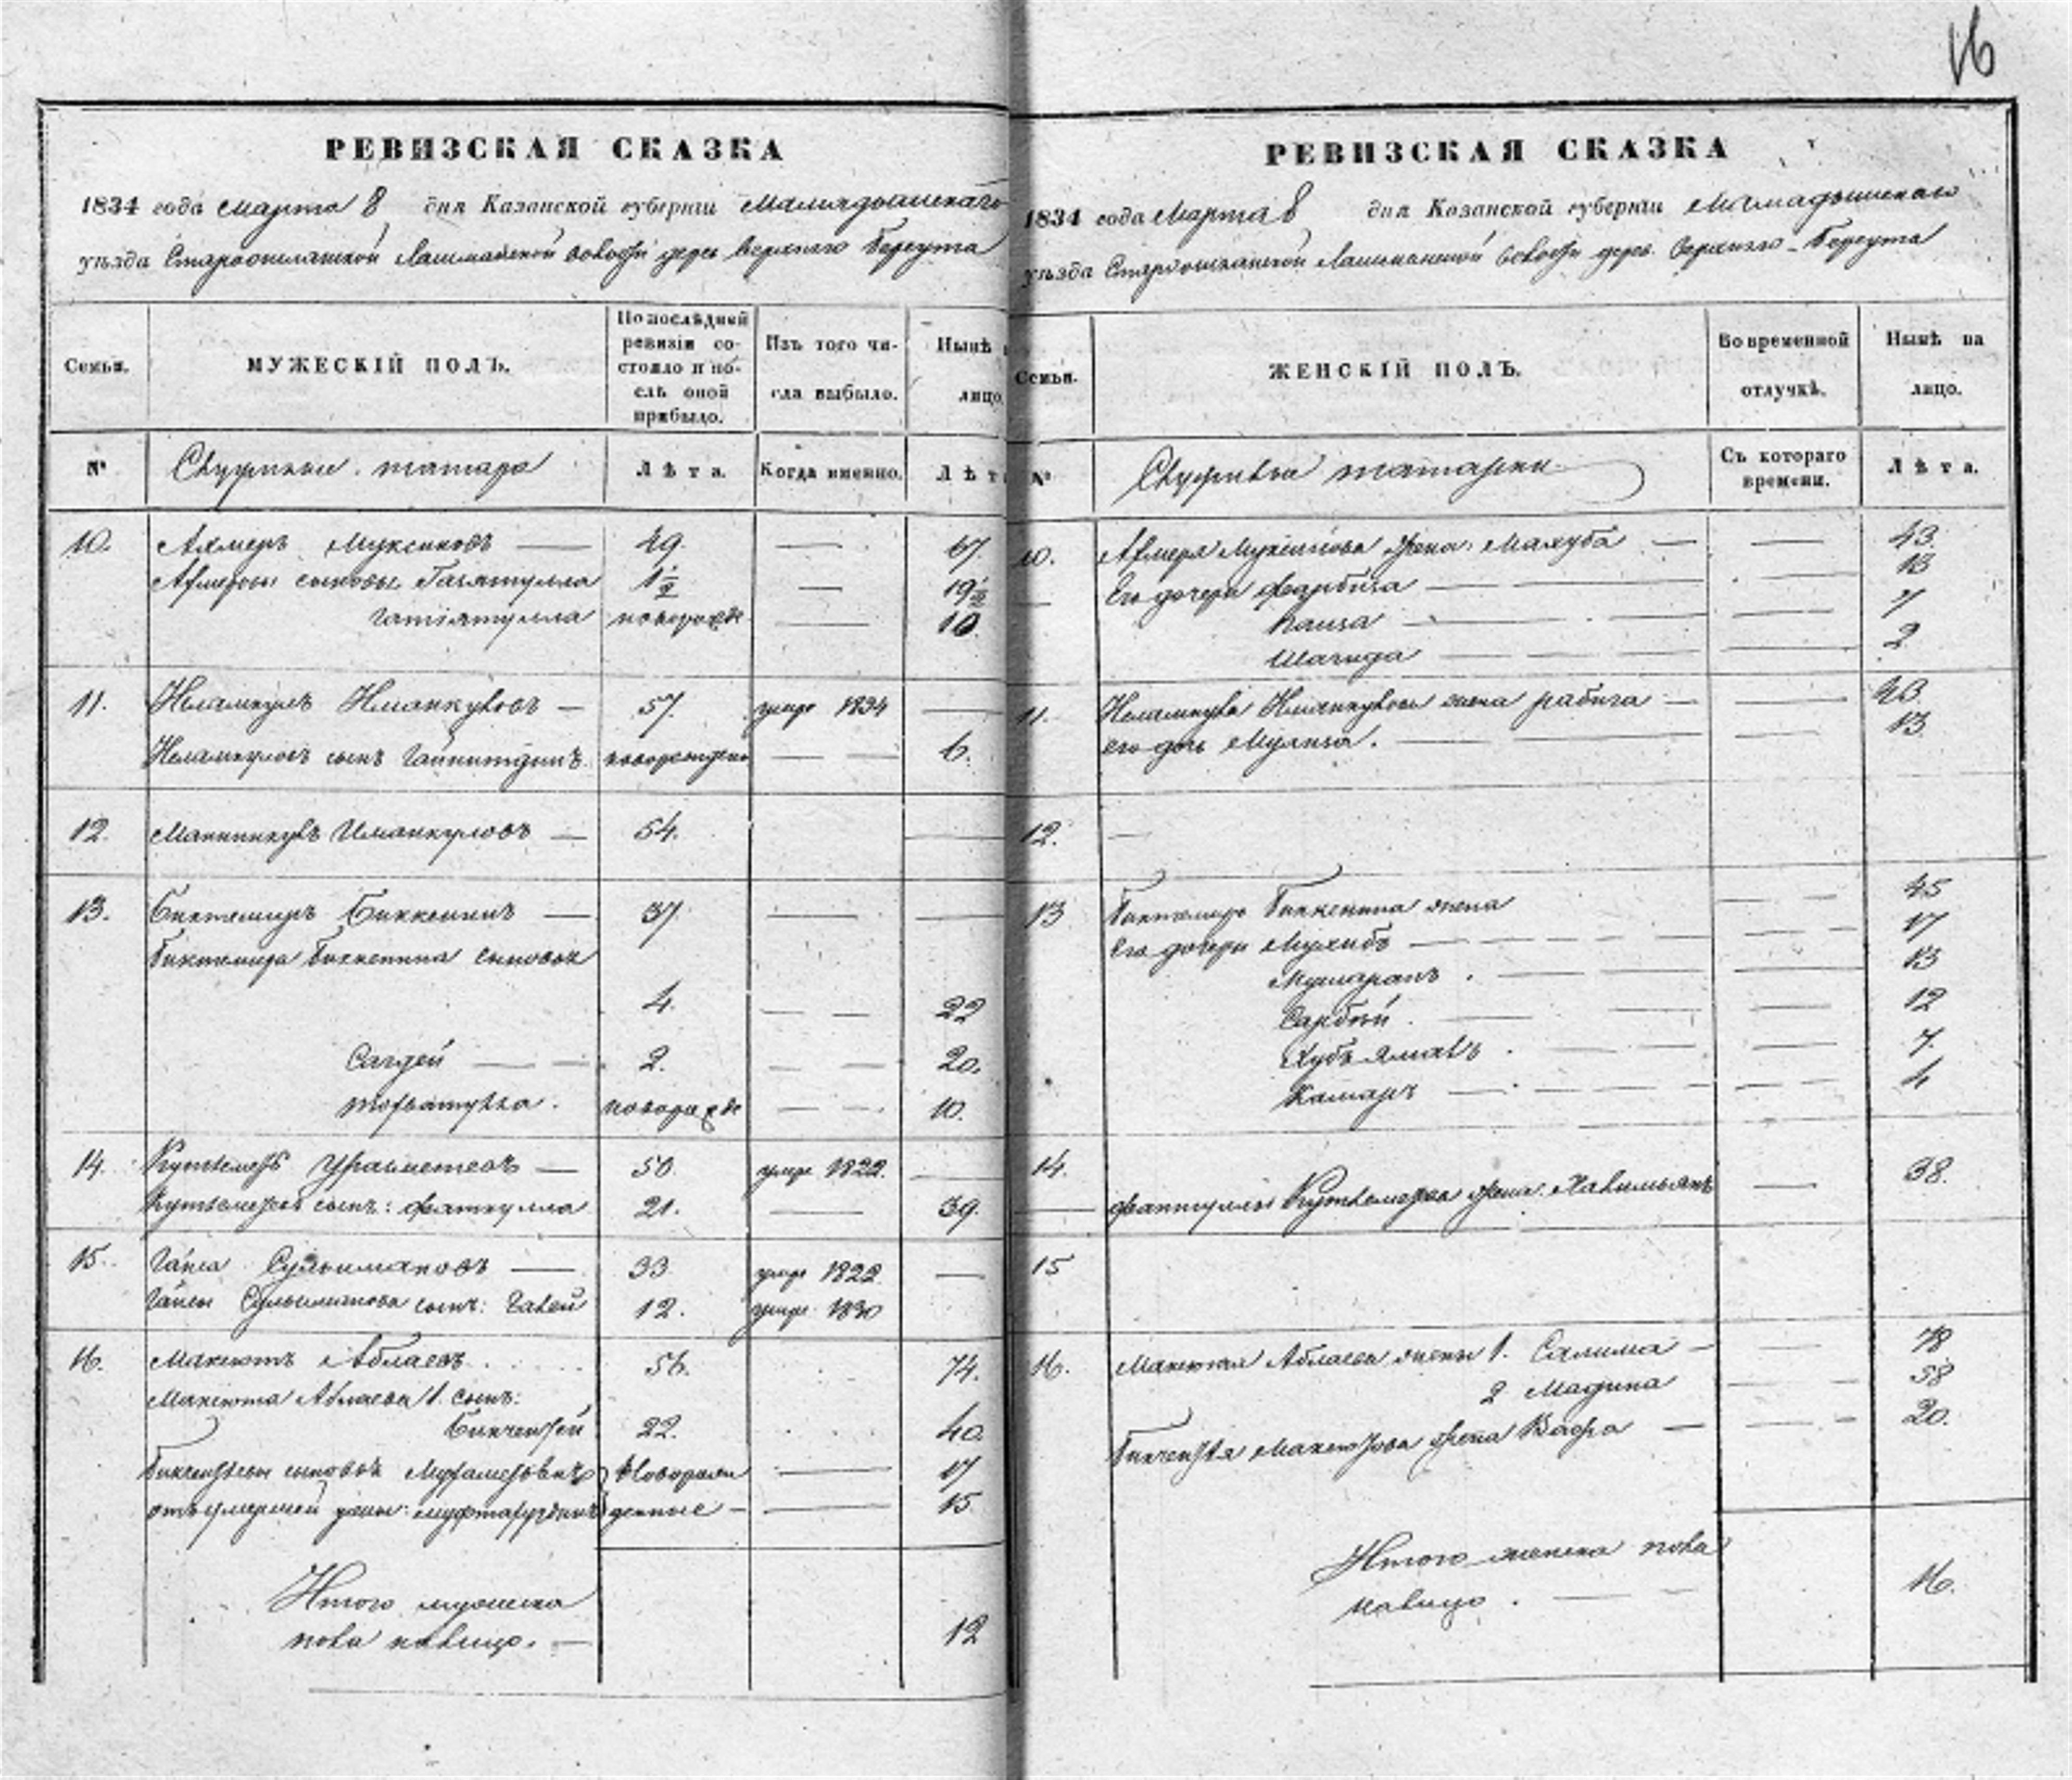 16
РЕВИЗСКАЯ СКАЗКА
1834 года Марта 8 дня Казанской губернiи Мамадышскаго
уѣзда Лашманской волости дерев Верхняго Берсута
Семьи.
МУЖЕСКIЙ ПОЛЪ.
По послѣдней ревизiи состояло и послѣ оной прибыло.
Изъ того числа выбыло.
Нынѣ на лицо.
№
Служилые татара
Лѣта.
Когда именно.
Лѣта
10. Аямеръ Муксиновъ — 49. — 67.
сыновья Гаязтулла 1½ — 19½
Гатiятулла новорожде — 10.
11. Ишманкуловъ — 57. умре 1834 —
сынъ Гайнитдинъ новорожденъ — — 6.
12. Иманкуловъ — 54. —
13. Биктемиръ Биккенинъ — 37. — —
Биктемира Биккенина сыновья
4. — — 22
Сагдей — — 2. — — 20.
новорожде — — 10.
14. Кутлемеръ — 50 умре 1822. —
сынъ: Фаткулла 21. — 39.
15. Гайса Сулеимановъ — 33 умре 1822. —
Гайсы Сулейманова сынъ: Галей 12. умре 1830
16. Максютъ Аблаевъ 56. 74.
Максюта Аблаева 1. сынъ:
Бикчентей 22. 40.
сыновья Новорож — 17
отъ умершей жены: денные — — 15
Итого мужеска
пола налицо. — 12
РЕВИЗСКАЯ СКАЗКА
1834 года Марта 8 дня Казанской губернiи Мамадышскаго
уѣзда Лашманской волости дерев. Верхняго-Берсута
Семьи.
ЖЕНСКIЙ ПОЛЪ.
Во временной отлучкѣ.
Нынѣ на лицо.
№
Служилыя татарки
Съ котораго времени.
Лѣта.
10. Муксинова жена: Махуба — — 43.
Его дочери Фарбиза — — 13
Кашза — — 7
Шагида — — 2
11. жена рабига — — 43.
его дочь Мулиза. — — 13
12. —
13 Биктемира Биккенина жена — — 45
Его дочери Мухибъ — — 17
— — 13
Сарбiй — — 12
Хубъямалъ — — 7.
Камаръ — — 4
14. Фаткуллы жена — 38.
15
16. Максюта Аблаева жены 1. Салима — — 78
2 Мадина — — 58
Бикчентея Максютова жена Вафа — — 20.
Итого женска пола
налицо. — — 16.